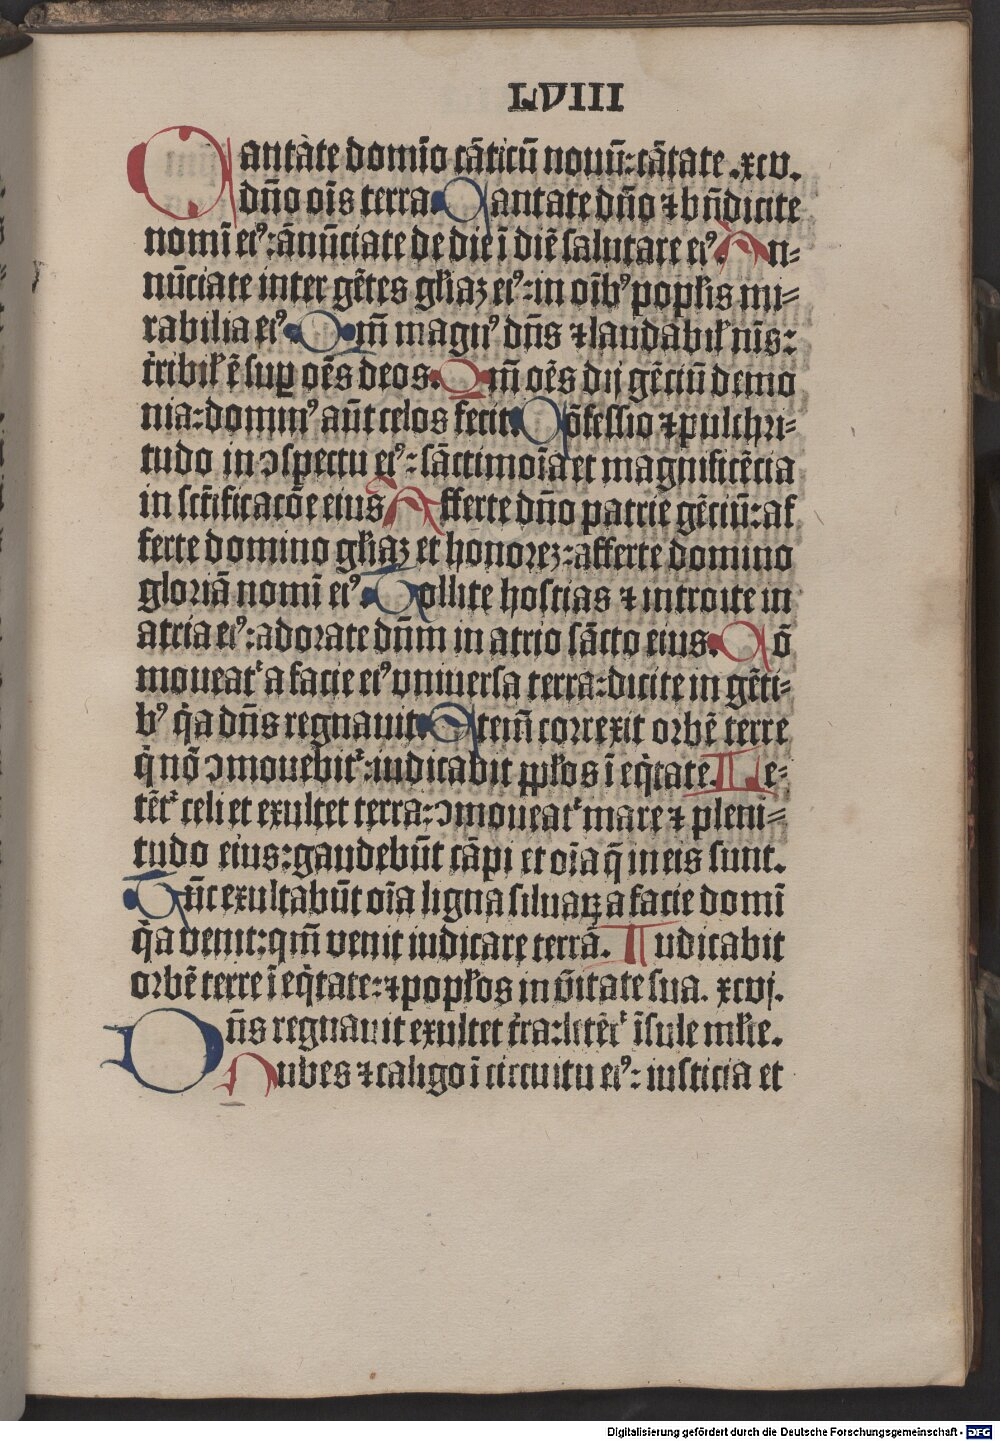 LVIII
Cantate domĩo cãticũ nouũ: cãtate .xcv.
dño oĩs terra. Cantate dño ⁊ bñdicite
nomĩ eiꝰ: ãnũciate de die ĩ diẽ salutare eiꝰ. An-
nũciate inter gẽtes gl̃iaꝫ eiꝰ: in oĩbꝰ popl̃is mi-
rabilia eiꝰ. Qm̃ magnꝰ dñs ⁊ laudabil̃ nĩs:
t̃ribil̃ ẽ suꝑ oẽs deos. Qm̃ oẽs dij gẽciũ demo
nia: dominꝰ aũt celos fecit. Cõfessio ⁊ pulchri-
tudo in ↄspectu eiꝰ: sãctimoĩa et magnificẽcia
in sct̃ificacõe eius Afferte dño patrie gẽciũ: af
ferte domino gl̃iaꝫ et honoreꝫ: afferte domino
gloriã nomĩ eiꝰ. Tollite hostias ⁊ introite in
atria eiꝰ: adorate dñm in atrio sãcto eius. Cõ
moueat᷑ a facie eiꝰ vniuersa terra: dicite in gẽti-
bꝰ q̃a dñs regnauit. Etem̃ correxit orbẽ terre
q̃ nõ ↄmouebit᷑: iudicabit ppl̃os ĩ eq̃tate. Le-
tẽt᷑ celi et exultet terra: ↄmoueat᷑ mare ⁊ pleni-
tudo eius: gaudebũt cãpi et oĩa q̃ in eis sunt.
Tũc exultabũt oĩa ligna siluaꝝ a facie domĩ
q̃a venit: qm̃ venit iudicare terrã. Iudicabit
orbẽ terre ĩ eq̃tate: ⁊ popl̃os in ṽitate sua. xcvj.
Dñs regnauit exultet t̃ra: letẽt᷑ ĩsule ml̃te.
Nubes ⁊ caligo ĩ circuitu eiꝰ: iusticia et
Digitalisierung gefördert durch die Deutsche Forschungsgemeinschaft - DFG